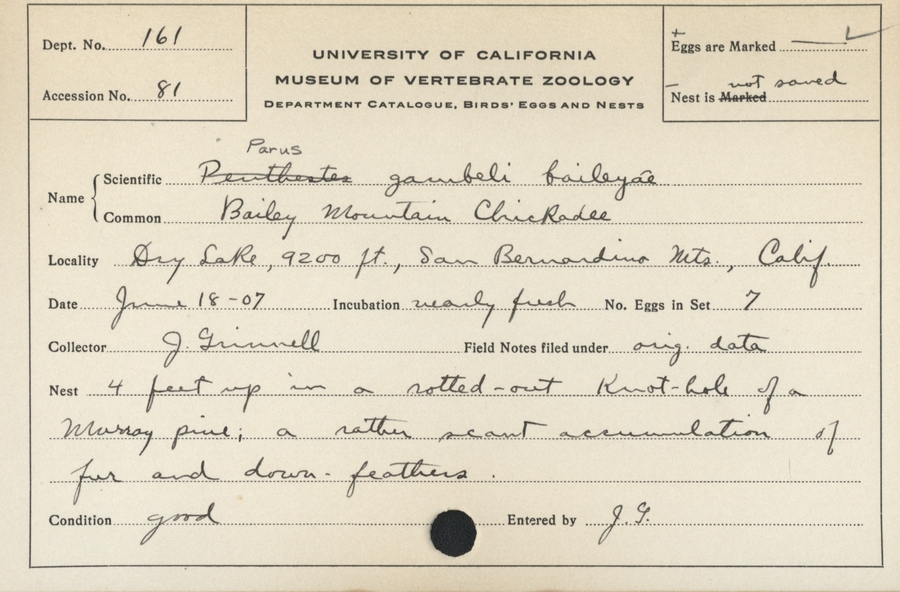 Dept. No. 161
Accession No. 81
UNIVERSITY OF CALIFORNIA
MUSEUM OF VERTEBRATE ZOOLOGY
DEPARTMENT CATALOGUE, BIRDS' EGGS AND NESTS
+
Eggs are Marked
– not saved
Nest is Marked
Parus
Name
Scientific Penthestes gambeli baileyae
Common Bailey Mountain Chickadee
Locality Dry Lake, 9200 ft., San Bernardino Mts., Calif.
Date June 18-07 Incubation nearly fresh No. Eggs in Set 7
Collector J. Grinnell Field Notes filed under orig. data
Nest 4 feet up in a rotted-out Knot-hole of a
Murray pine; a rather scant accumulation of
fur and down-feathers.
Condition good Entered by J.G.